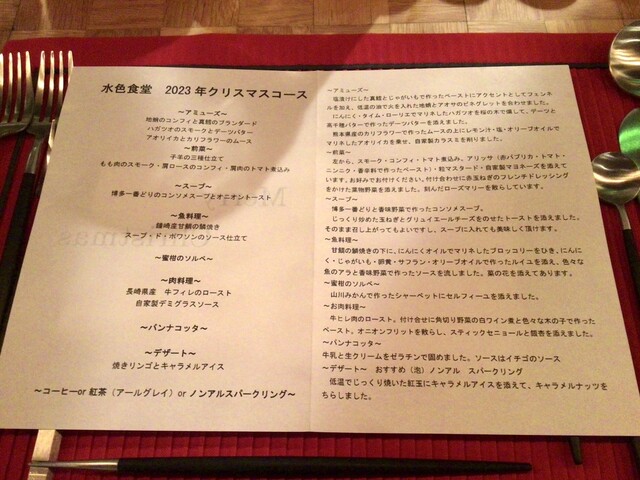 水色食堂　2023年クリスマスコース
～アミューズ～
地蛸のコンフィと真鱈のブランダード
ハガツオのスモークとデーツバター
アオリイカとカリフラワーのムース
～前菜～
子羊の三種仕立て
もも肉のスモーク・肩ロースのコンフィ・肩肉のトマト煮込み
～スープ～
博多一番どりのコンソメスープとオニオントースト
～魚料理～
鐘崎産甘鯛の鱗焼き
スープ・ド・ポワソンのソース仕立て
～蜜柑のソルベ～
～肉料理～
長崎県産　牛フィレのロースト
自家製デミグラスソース
～パンナコッタ～
～デザート～
焼きリンゴとキャラメルアイス
～コーヒーor 紅茶（アールグレイ）or ノンアルスパークリング～
～アミューズ～
塩漬けにした真鱈とじゃがいもで作ったペーストにアクセントとしてフェンネ
ルを加え、低温の油で火を入れた地蛸とアオサのビネグレットを合わせました。
にんにく・タイム・ローリエでマリネしたハガツオを桜の木で燻して、デーツと
高千穂バターで作ったデーツバターを添えました。
熊本県産のカリフラワーで作ったムースの上にレモン汁・塩・オリーブオイルで
マリネしたアオリイカを乗せ、自家製カラスミを削りました。
～前菜～
左から、スモーク・コンフィ・トマト煮込み。アリッサ（赤パプリカ・トマト・
ニンニク・香辛料で作ったペースト）・粒マスタード・自家製マヨネーズを添えて
います。お好みでお付けください。付け合わせに赤玉ねぎのフレンチドレッシング
をかけた葉物野菜を添えました。刻んだローズマリーを散らしています。
～スープ～
博多一番どりと香味野菜で作ったコンソメスープ。
じっくり炒めた玉ねぎとグリュイエールチーズをのせたトーストを添えました。
そのまま召し上がってもよいですし、スープに入れても美味しく頂けます。
～魚料理～
甘鯛の鱗焼きの下に、にんにくオイルでマリネしたブロッコリーをひき、にんに
く・じゃがいも・卵黄・サフラン・オリーブオイルで作ったルイユを添え、色々な
魚のアラと香味野菜で作ったソースを流しました。菜の花を添えてあります。
～蜜柑のソルベ～
山川みかんで作ったシャーベットにセルフィーユを添えました。
～お肉料理～
牛ヒレ肉のロースト。付け合せに角切り野菜の白ワイン煮と色々な木の子で作った
ペースト。オニオンフリットを散らし、スティックセニョールと慈杏を添えました。
～パンナコッタ～
牛乳と生クリームをゼラチンで固めました。ソースはイチゴのソース
～デザート～　おすすめ（泡）ノンアル　スパークリング
低温でじっくり焼いた紅玉にキャラメルアイスを添えて、キャラメルナッツを
ちらしました。